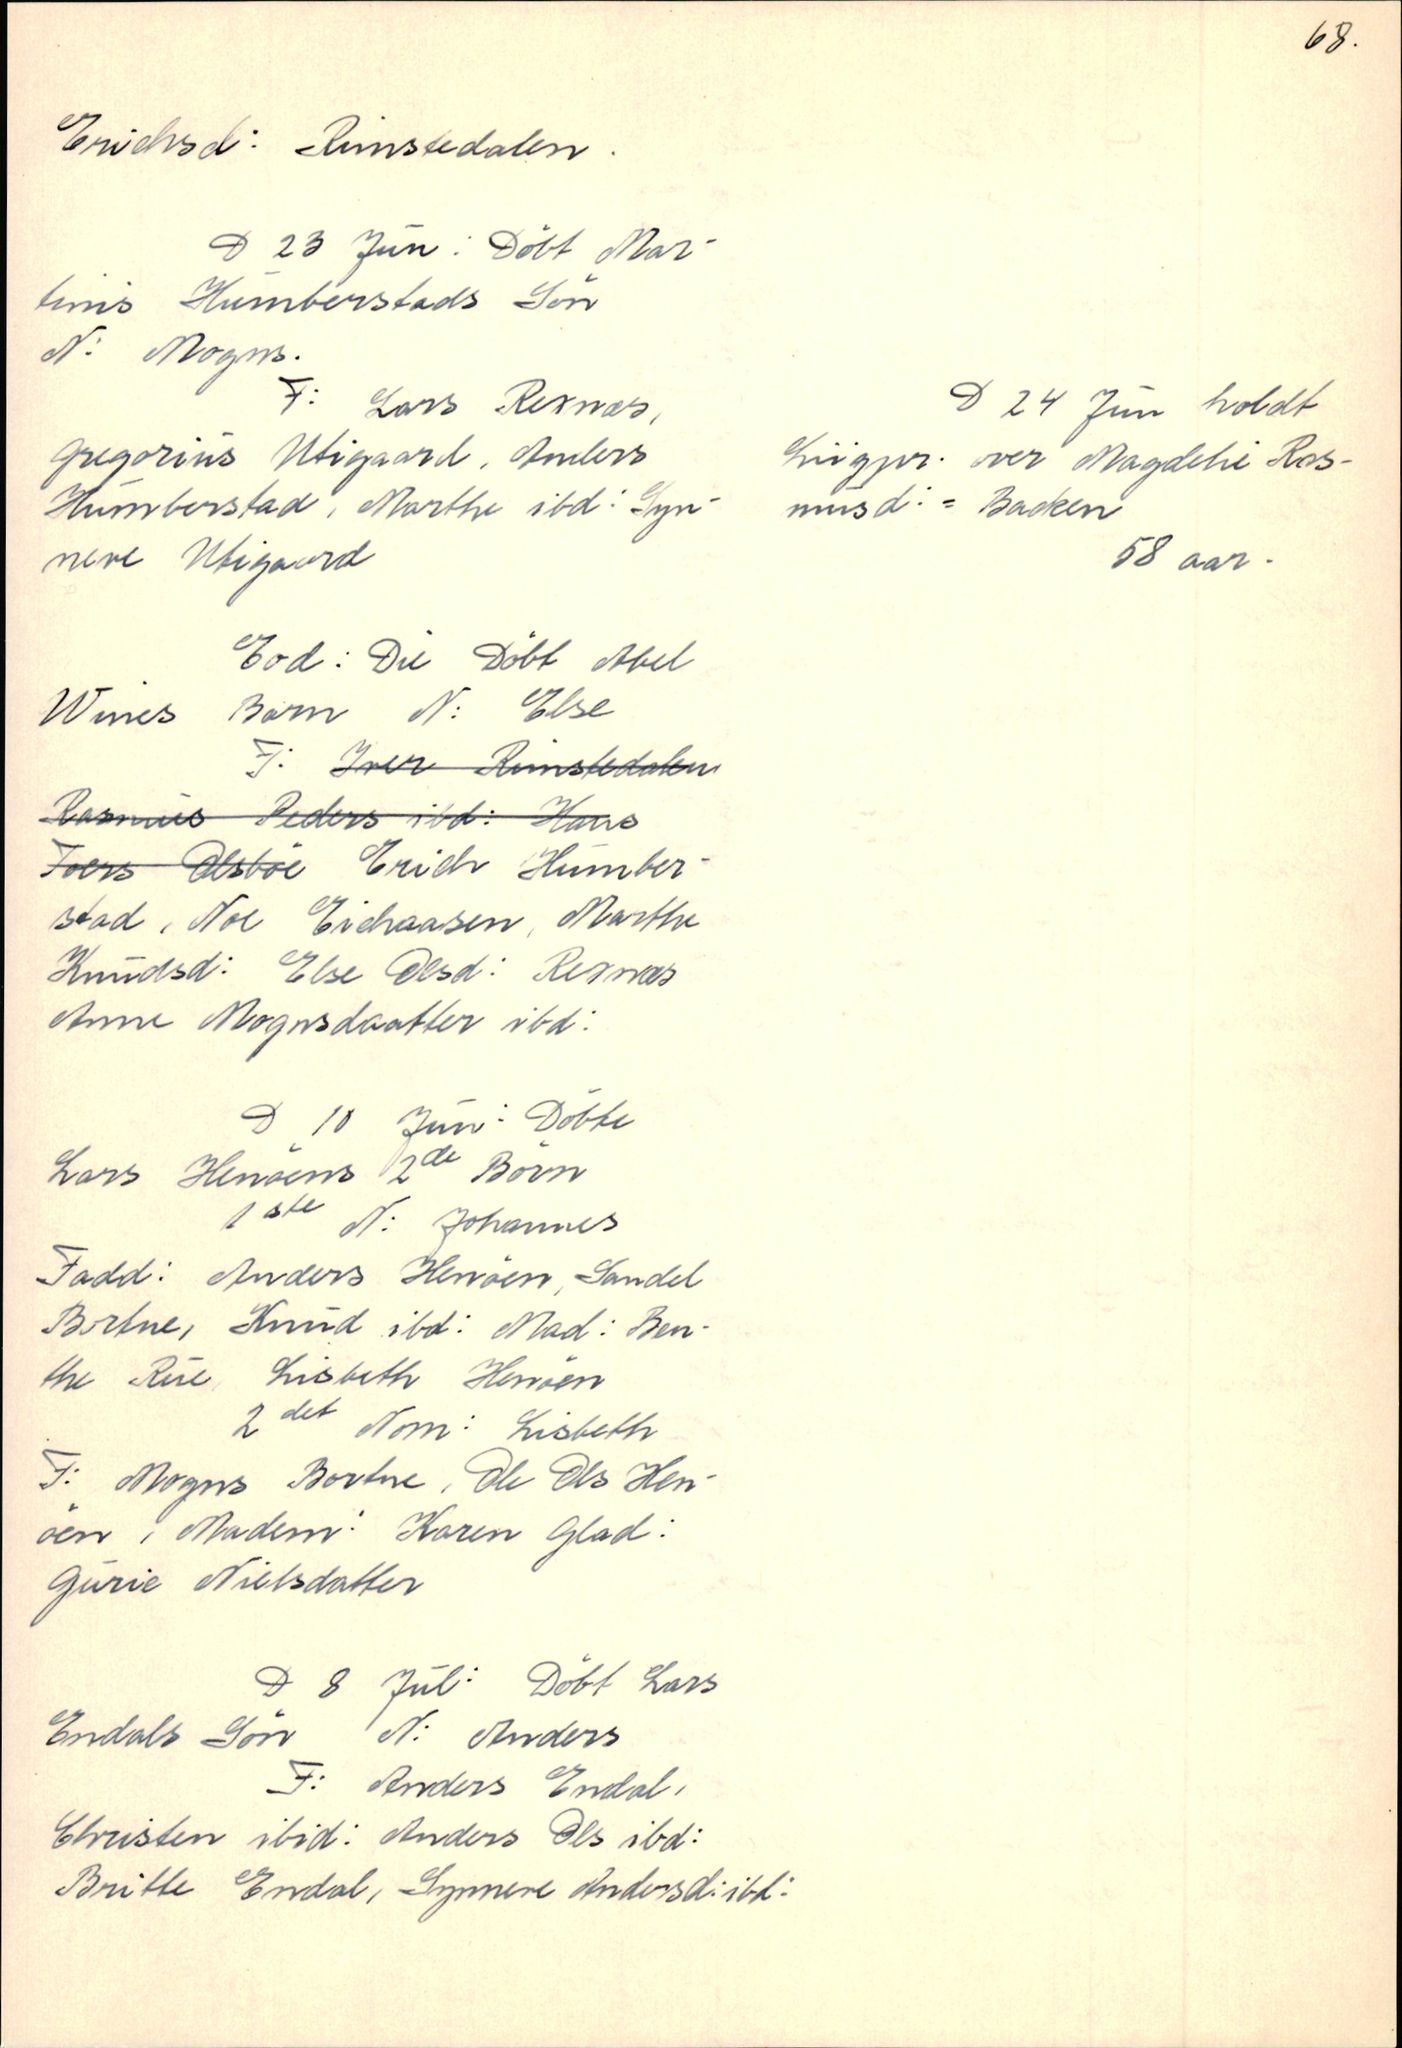 68.
Erichsd: Rimstedalen.
D 23 Jun: Döbt Mar-
tinis Humberstads Sön
N: Mogns.
F: Lars Rexnæs,
Gregorius Utigaard, Anders
Humberstad, Marthe ibd: Syn-
neve Utigaard
Eod: Die Döbt Abel
Wines Barn N: Else
F: Iver Rimstedalen
Rasmus Peders ibd: Hans
Toers Olsböe Erich Humber-
stad, Noe Eichaasen, Marthe
Knudsd: Else Olsd: Rexnæs
Anne Mognsdaatter ibd:
D 10 Jun: Döbte
Lars Henöens 2de Börn
1ste N: Johannes
Fadd: Anders Henöen, Sandel
Bortne, Knud ibd: Mad: Ben-
the Rüe, Lisbeth Henöen
2det Nom: Lisbeth
F: Mogns Bortne, Ole Ols Hen-
öen, Madem: Karen Glad:
Gurie Nielsdatter
D 8 Jul: Döbt Lars
Endals Sön N: Anders
F: Anders Endal,
Christen ibid: Anders Ols ibd:
Britte Endal, Synneve Andersd: ibd:
D 24 Jun holdt
Liigpr. over Magdele Ras-
musd: = Backen
58 aar.